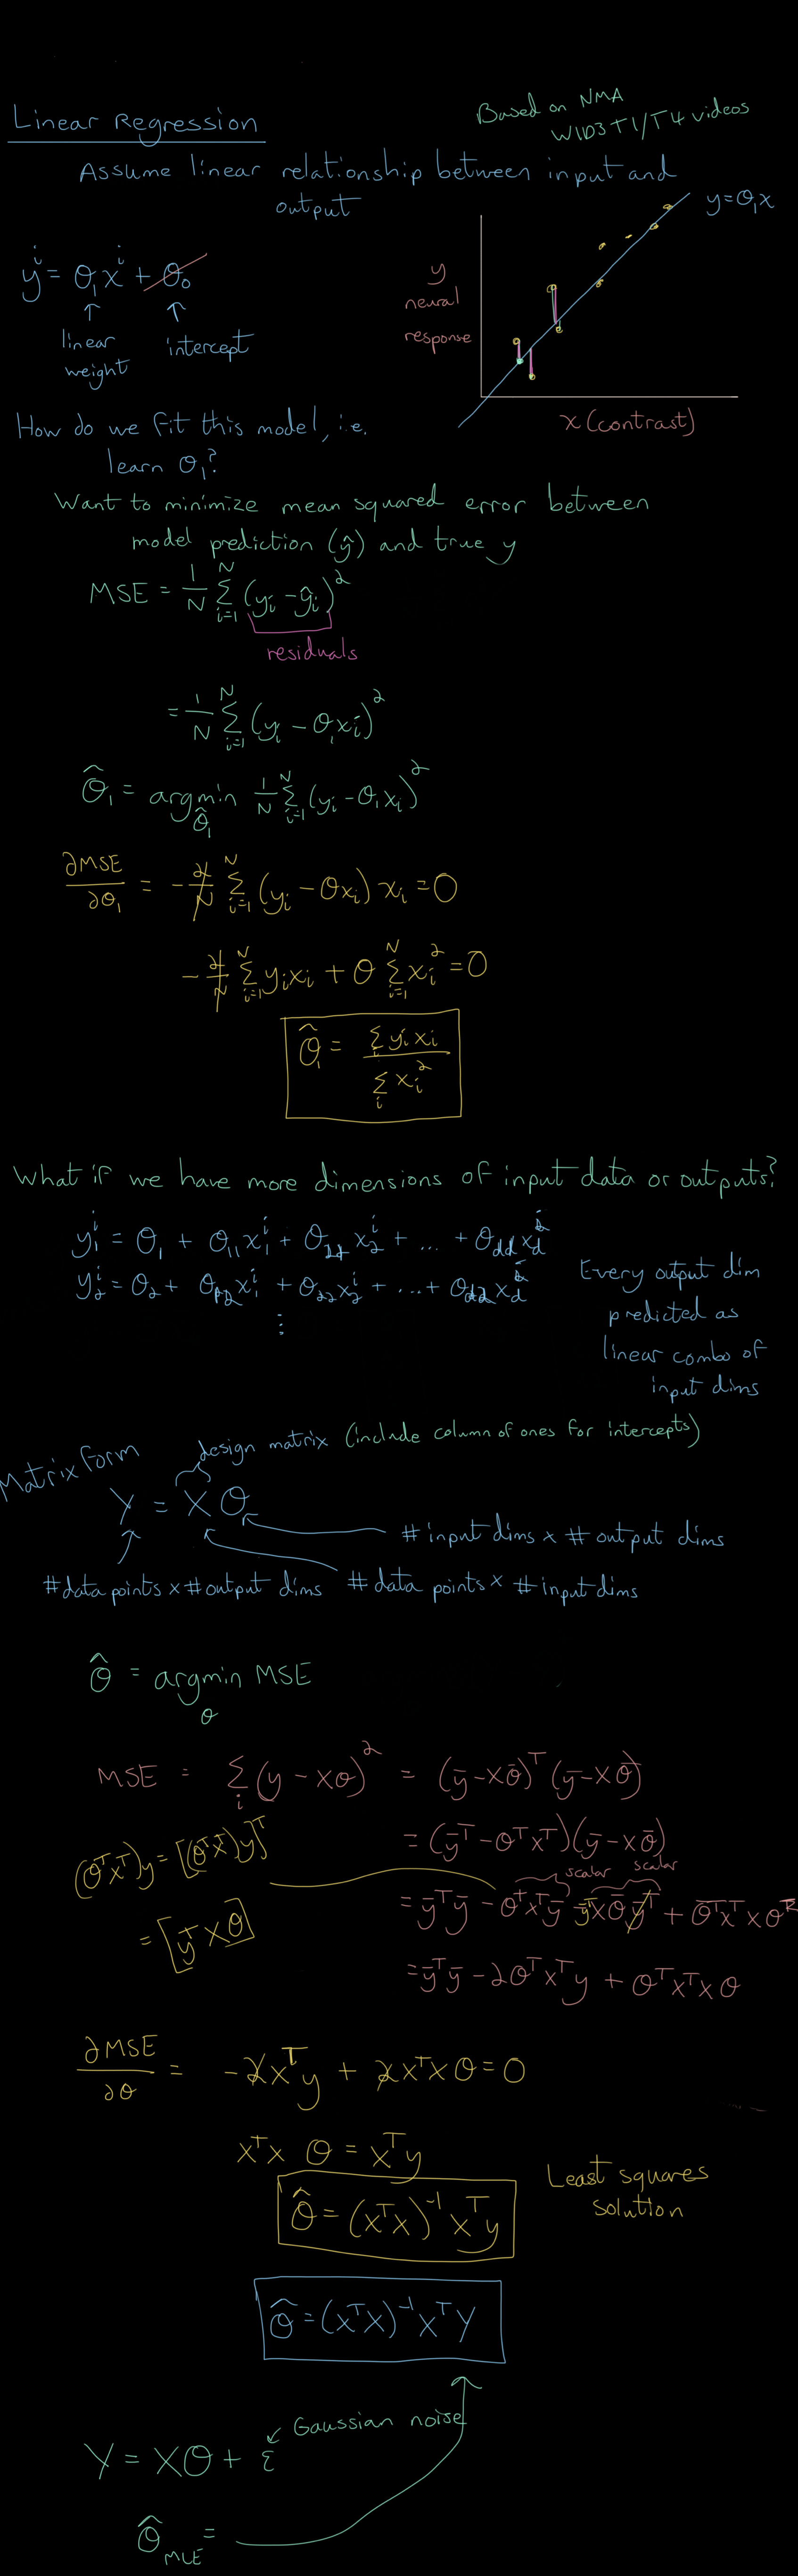 Linear Regression
Based on NMA
W1D3 T1/T4 videos
Assume linear relationship between input and
output
y^i = θ₁x^i + θ₀
↑ ↑
linear intercept
weight
y
neural
response
y=θ₁x
x (contrast)
How do we fit this model, i.e.
learn θ₁?
Want to minimize mean squared error between
model prediction (ŷ) and true y
MSE = 1/N Σ_{i=1}^N (y_i - ŷ_i)²
residuals
= 1/N Σ_{i=1}^N (y_i - θ₁x_i)²
θ̂₁ = argmin_{θ̂₁} 1/N Σ_{i=1}^N (y_i - θ₁x_i)²
∂MSE/∂θ₁ = -2/N Σ_{i=1}^N (y_i - θx_i) x_i = 0
-2/N Σ_{i=1}^N y_i x_i + θ Σ_{i=1}^N x_i² = 0
θ̂₁ = Σ_i y_i x_i / Σ_i x_i²
What if we have more dimensions of input data or outputs?
y₁^i = θ₁ + θ₁₁x₁^i + θ₂₁x₂^i + ... + θ_{d1}x_d^i
y₂^i = θ₂ + θ₁₂x₁^i + θ₂₂x₂^i + ... + θ_{d2}x_d^i
⋮
Every output dim
predicted as
linear combo of
input dims
Matrix form
design matrix (include column of ones for intercepts)
Y = XΘ
# input dims x # output dims
#data points x # output dims
# data points x # input dims
θ̂ = argmin_θ MSE
MSE = Σ_i (y - xθ)² = (ȳ - Xθ̄)ᵀ(ȳ - Xθ̄)
= (ȳᵀ - θᵀxᵀ)(ȳ - xθ̄)
(θᵀxᵀ)y = [(θᵀxᵀ)y]ᵀ
= [yᵀxθ]
scalar scalar
= ȳᵀȳ - θᵀxᵀȳ - ȳᵀxθ̄ + θ̄ᵀxᵀxθ
= ȳᵀȳ - 2θᵀxᵀy + θᵀxᵀxθ
∂MSE/∂θ = -2xᵀy + 2xᵀxθ = 0
xᵀx θ = xᵀy
θ̂ = (xᵀx)⁻¹xᵀy
Least squares
solution
θ̂ = (xᵀX)⁻¹xᵀY
Gaussian noise
Y = XΘ + ε
θ̂_MLE =